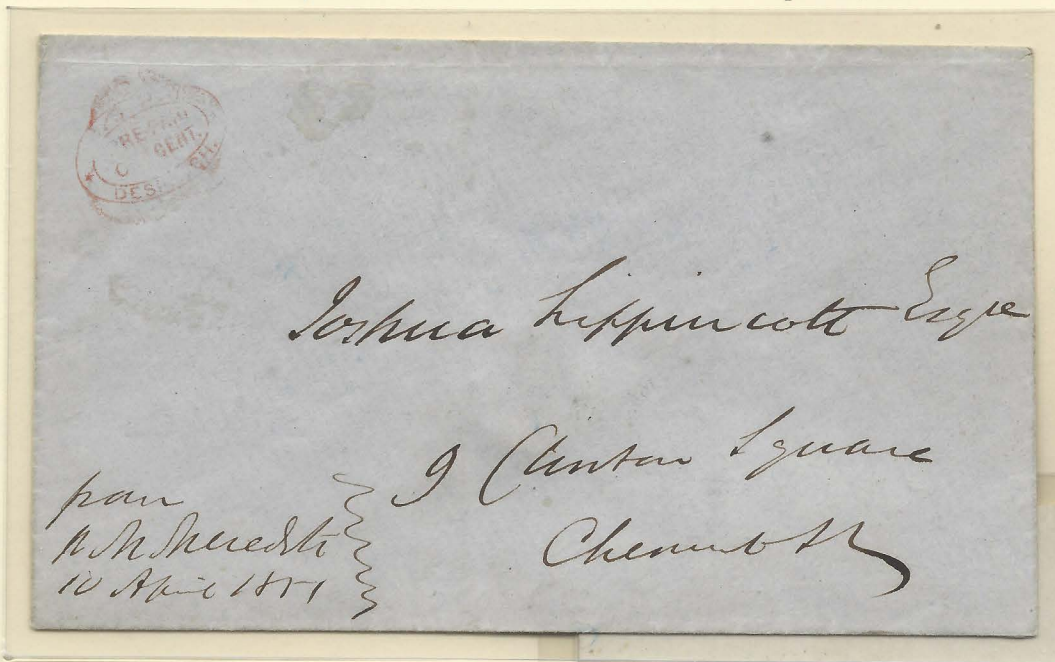 PRE-PAID
CENT.
Joshua Lippincott Esqre
9 Clinton Square
Chesnut St
from
Meredith
10 April 1851